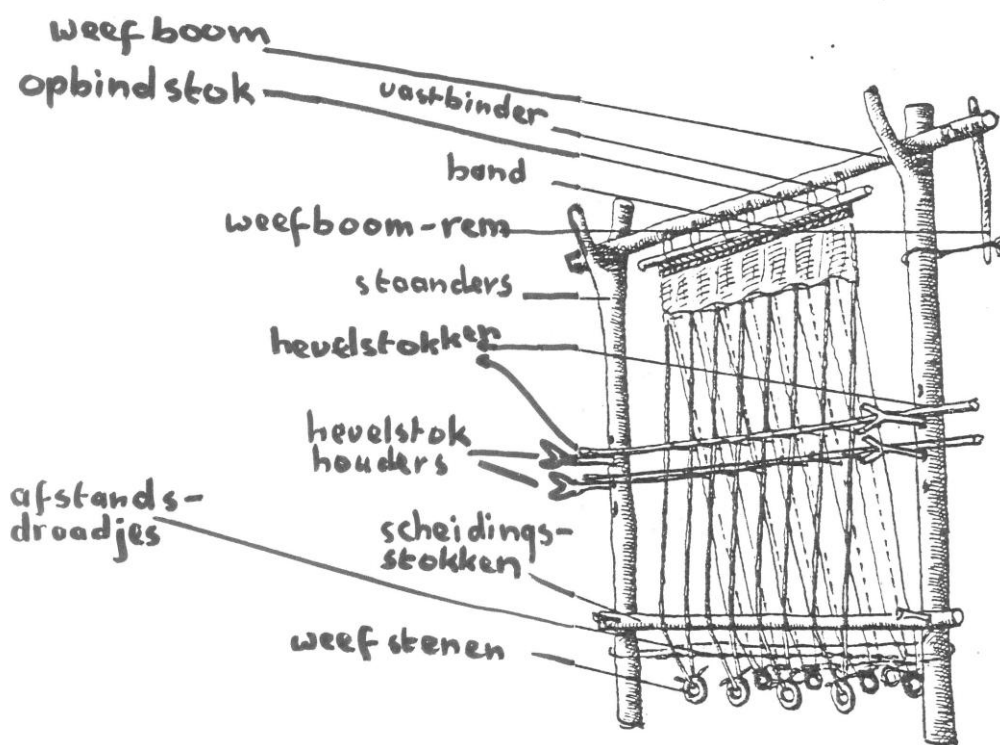 weefboom
opbindstok
vastbinder
band
weefboom-rem
staanders
hevelstokken
hevelstok
houders
afstands-
draadjes
scheidings-
stokken
weefstenen